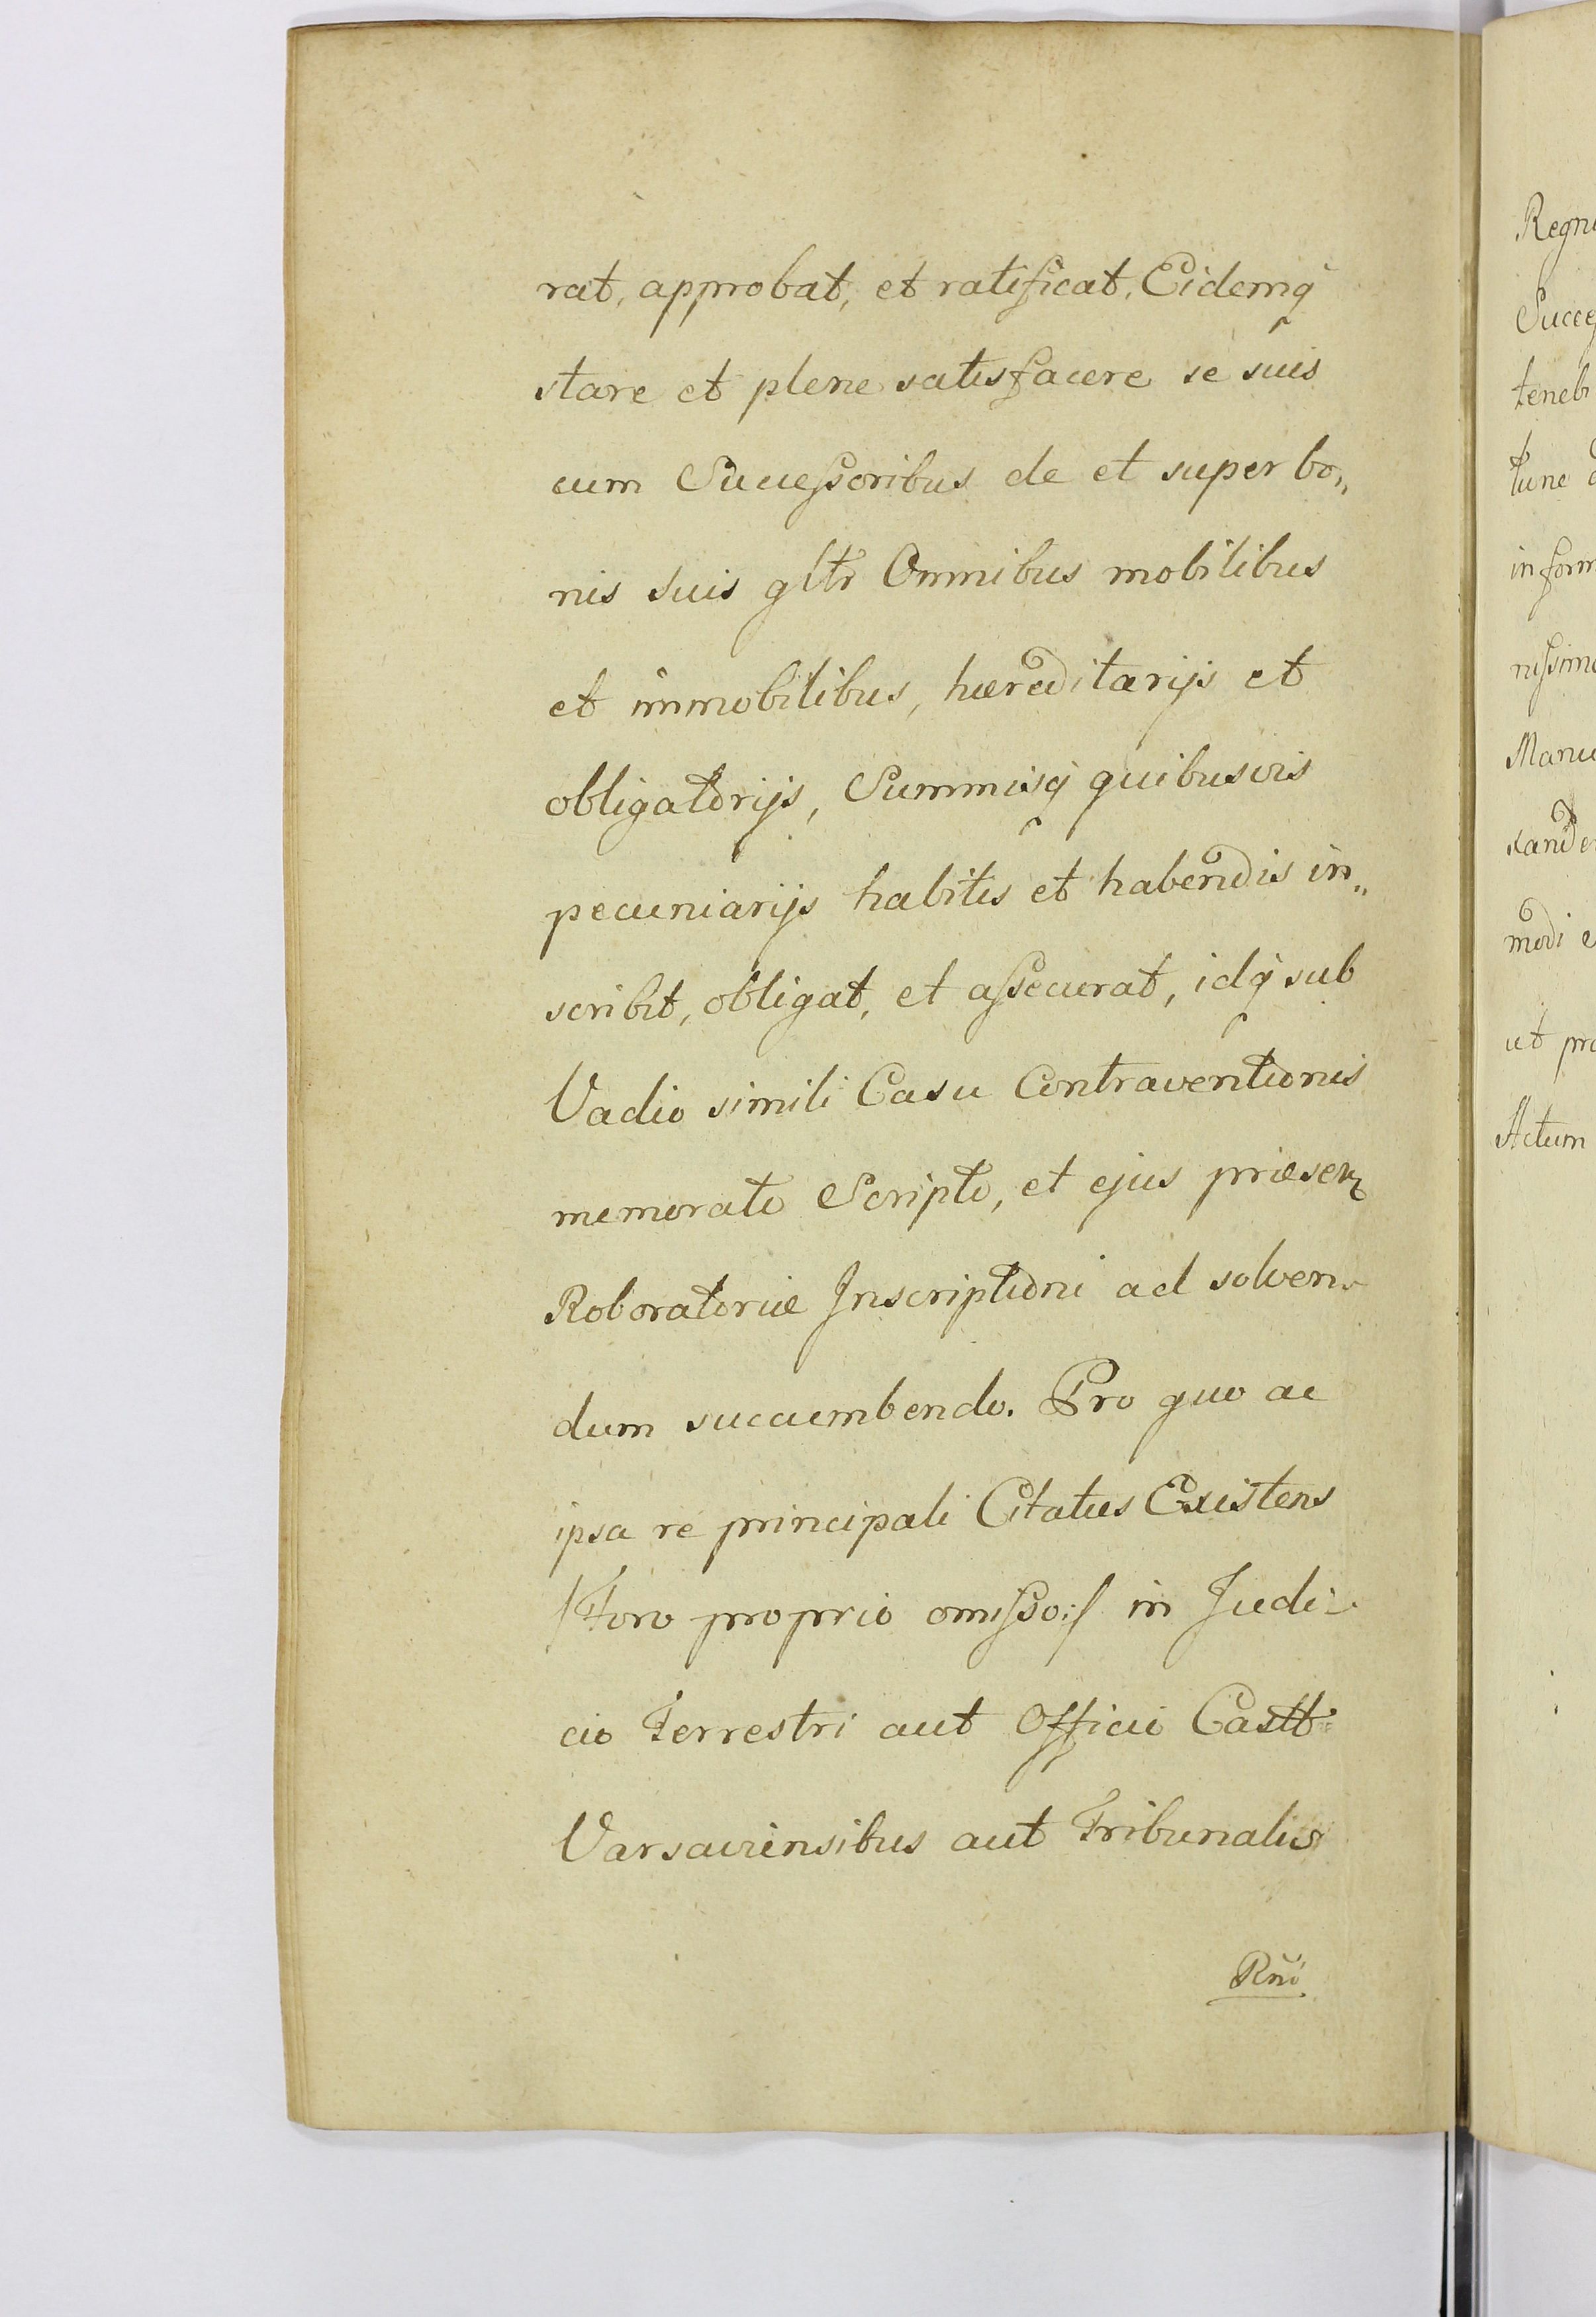 rat, approbat, et ratificat, Eidemq́
stare et plene satisfacere se suis
cum Successoribus de et super bo„
nis suis gltr Omnibus mobilibus
et immobilibus, hæreditarijs et
obligatorijs, Summisq́ quibusvis
pecuniarijs habitis et habendis in„
scribit, obligat, et assecurat, idq́ sub
Vadio simili Casu Contraventionis
memorato Scripto, et ejus præsen
Roboratoriæ Inscriptioni ad solven„
dum succumbendo. Pro quo ac
ipsa re principali Citatus Existens
/Foro proprio omisso:/ in Judi„
cio Terrestri aut Officio Castr
Varsaviensibus aut Tribunalis
Rnĩ
Regn
Succes
tenebi
tunc
inform
nissime
Manu
sander
modi e
ut pra
Actum